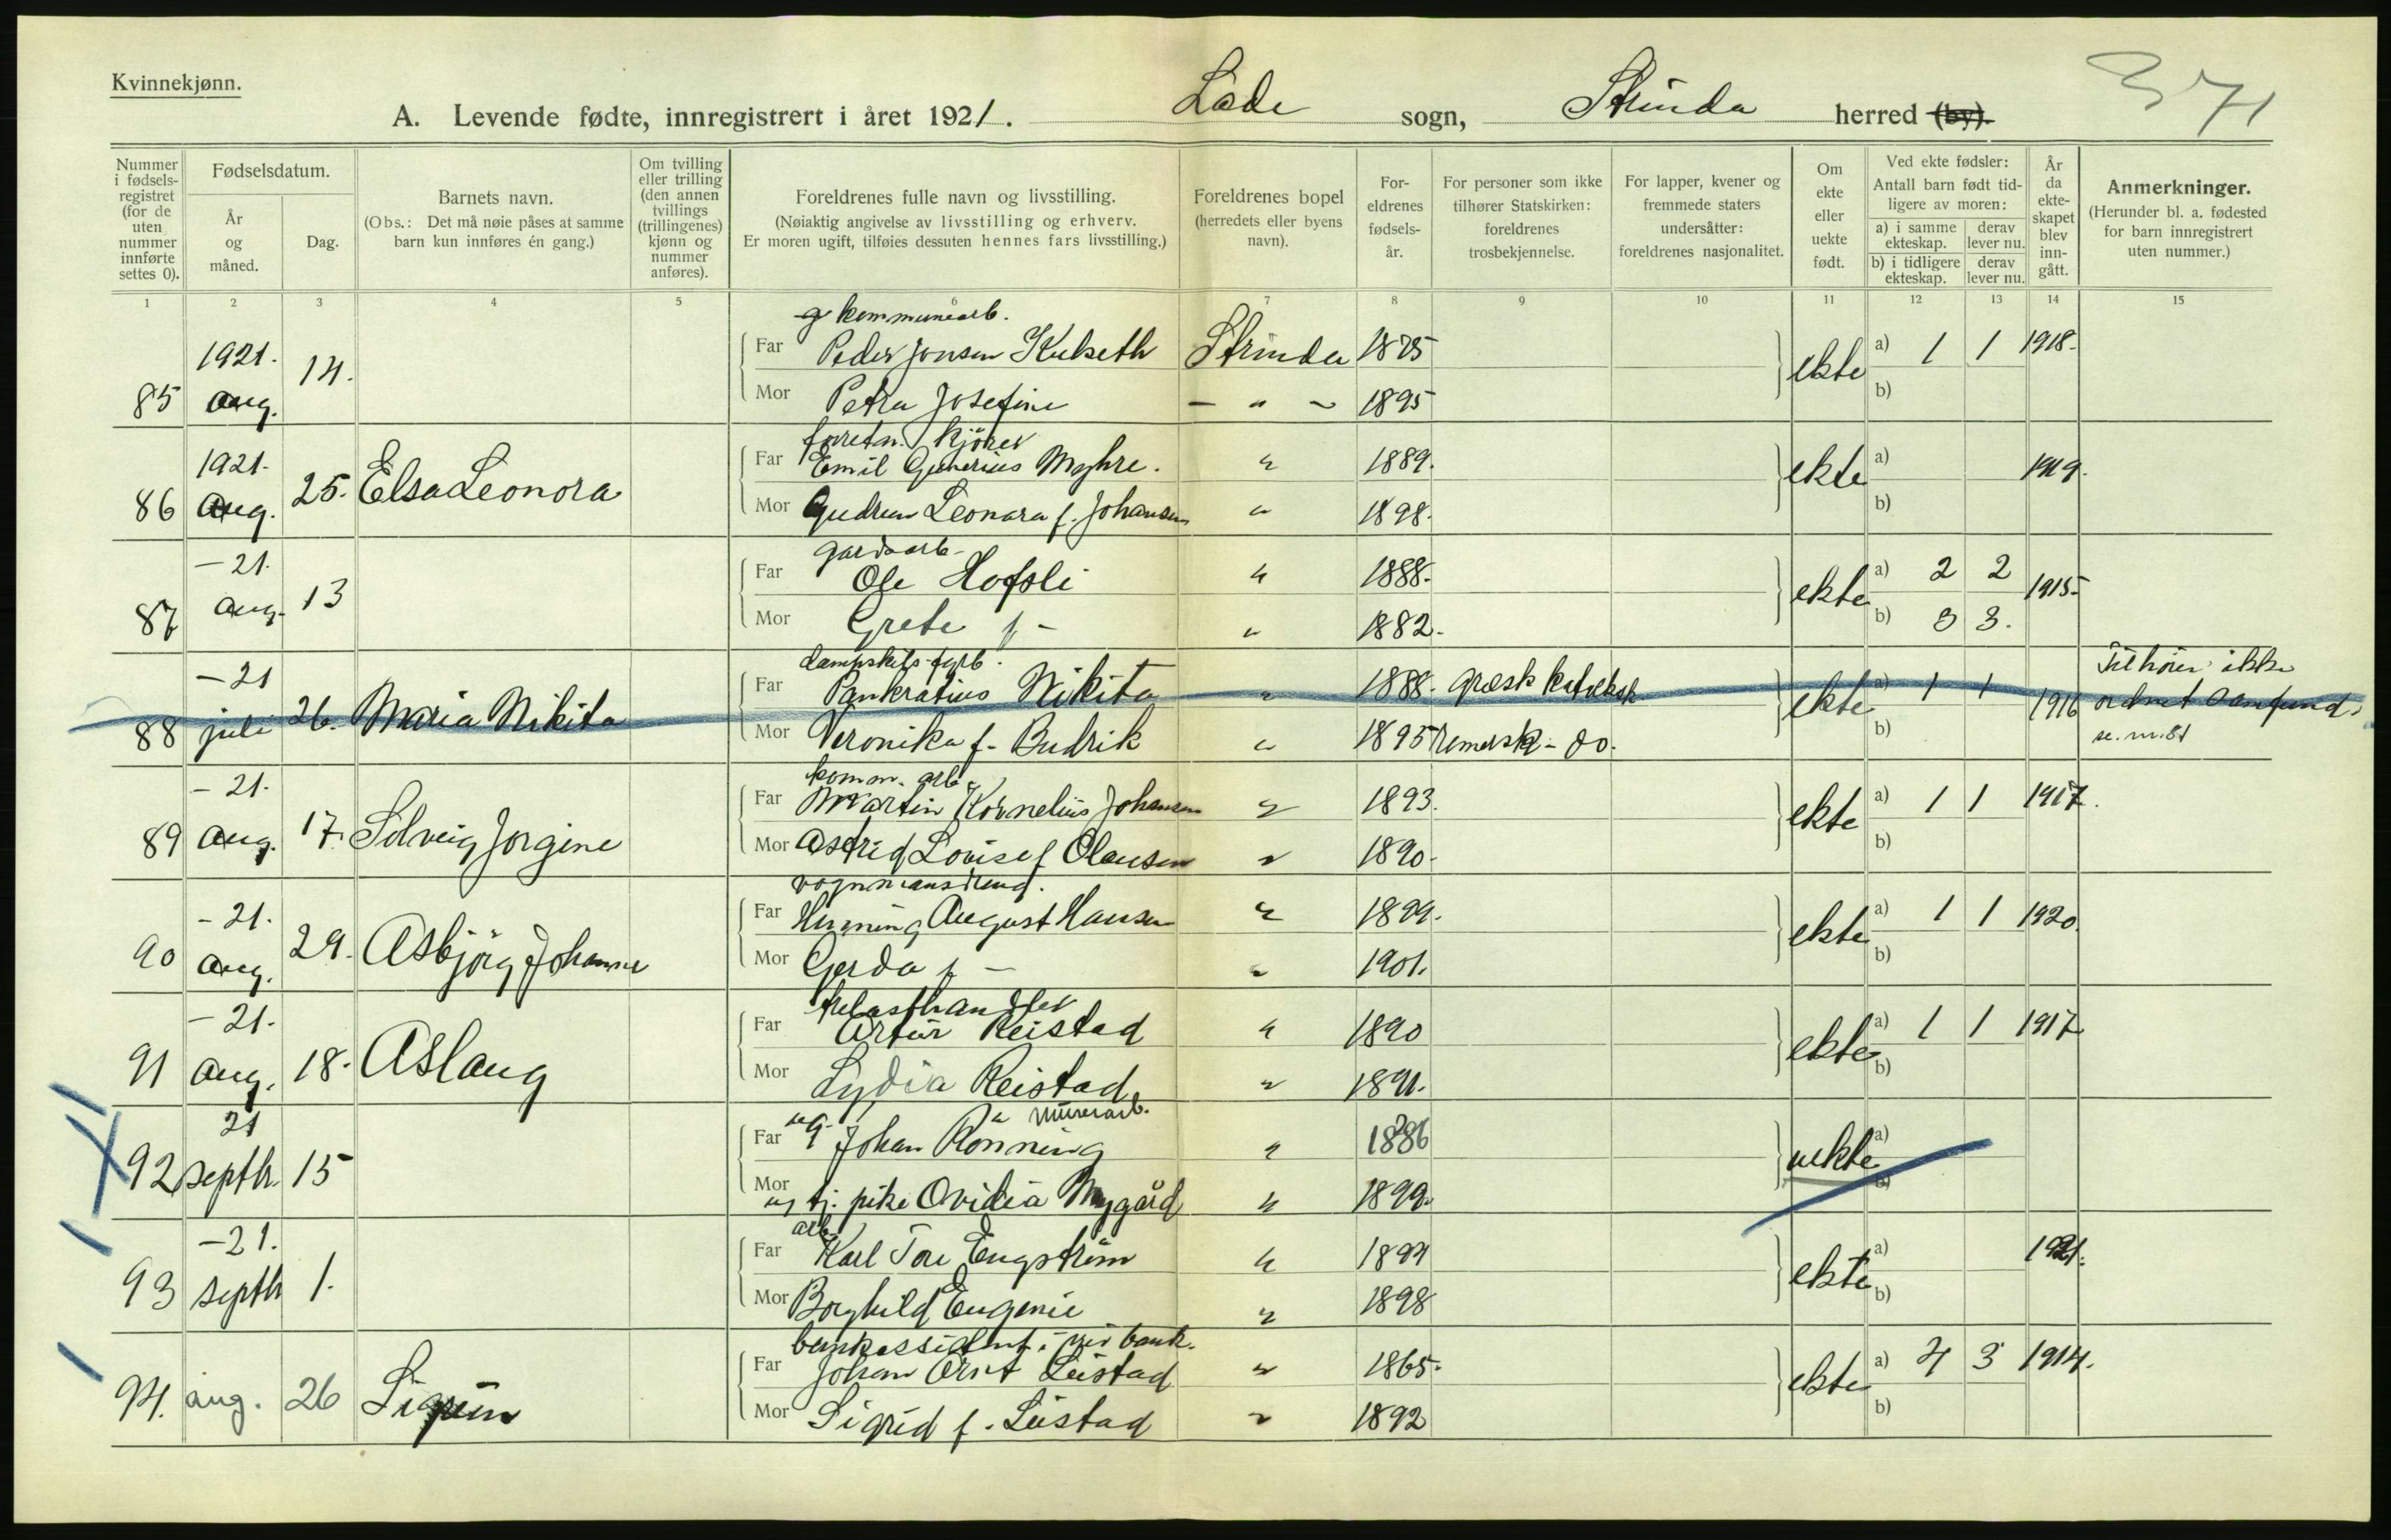 Kvinnekjønn.
371
A. Levende fødte, innregistrert i året 1921. Lade sogn, Strinda herred (by).
Nummer i fødsels-registret (for de uten nummer innførte settes 0).
Fødselsdatum.
År og måned.
Dag.
Barnets navn.
(Obs.: Det må nøie påses at samme barn kun innføres én gang.)
Om tvilling eller trilling (den annen tvillings (trillingenes) kjønn og nummer anføres).
Foreldrenes fulle navn og livsstilling.
(Nøiaktig angivelse av livsstilling og erhverv.
Er moren ugift, tilføies dessuten hennes fars livsstilling.)
Foreldrenes bopel
(herredets eller byens navn).
For-eldrenes fødsels-år.
For personer som ikke tilhører Statskirken: foreldrenes trosbekjennelse.
For lapper, kvener og fremmede staters undersåtter: foreldrenes nasjonalitet.
Om ekte eller uekte født.
Ved ekte fødsler:
Antall barn født tid-ligere av moren:
a) i samme ekteskap. derav lever nu.
b) i tidligere ekteskap. derav lever nu.
År da ekte-skapet blev inn-gått.
Anmerkninger.
(Herunder bl. a. fødested for barn innregistrert uten nummer.)
1 2 3 4 5 6 7 8 9 10 11 12 13 14 15
g kommunearb.
85 1921. aug. 14. Far Peder Jonsen Kulseth Strinda 1875 ekte a) 1 1 1918.
Mor Petra Josefine – " – 1895 b)
forretn. kjører
86 1921. aug. 25. Elsa Leonora Far Emil Gunerius Myhre. " 1889. ekte a) 1919.
Mor Gudrun Leonora f. Johansen " 1898. b)
gardsarb.
87 –21. aug. 13 Far Ole Hofsli " 1888. ekte a) 2 2 1915
Mor Grete f – " 1882. b) 3 3.
dampskibs-fyrb.
88 –21 juli 26. Maria Nikita Far Pankratius Nikita " 1888. græsk katolsk ekte a) 1 1 1916 Tilhører ikke ordnet samfund.
Mor Veronika f. Budrik " 1895 romersk – do. b) se. nr. 81
komm. arb.
89 –21. aug. 17. Solveig Jorgine Far Martin Kornelius Johansen " 1893. ekte a) 1 1 1917.
Mor Astrid Lovise f Olausen " 1890. b)
vognmansdreng.
90 –21. aug. 29. Asbjörg Johanne Far Henning August Hansen " 1899. ekte a) 1 1 1920.
Mor Gerda f – " 1901. b)
trelasthandler
91 –21. aug. 18. Aslaug Far Artur Reistad " 1890 ekte a) 1 1 1917
Mor Lydia Reistad. " 1891. b)
murerarb.
92 21 septbr. 15 Far ug Johan Rönning " 1886 uekte a)
Mor ug tj. pike Ovidia Nygård " 1899. b)
arb.
93 –21. septbr 1. Far Karl Tore Engström " 1894 ekte a) 1921.
Mor Borghild Eugenie " 1898 b)
bankassistent i bank.
94. aug. 26 Sigrun Far Johan Arnt Leistad " 1865. ekte a) 4 3 1914.
Mor Sigrid f. Leistad " 1892 b)